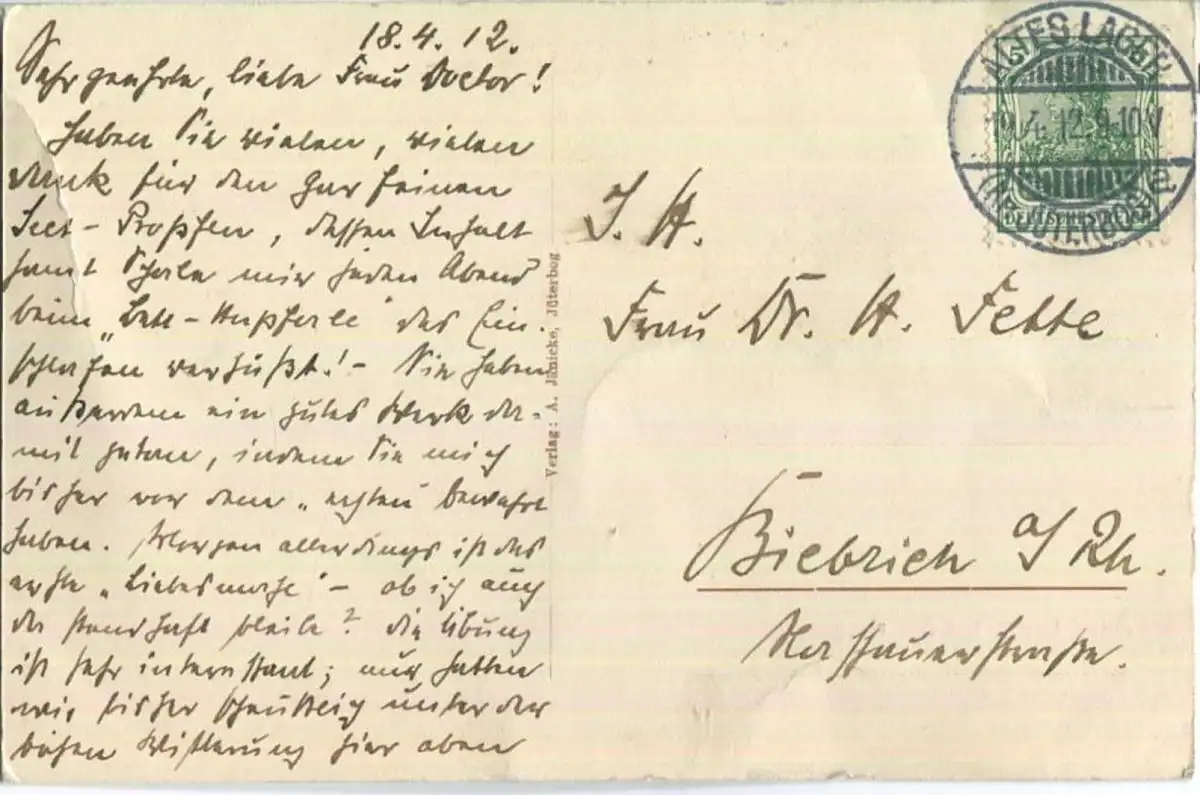 18.4.12.
Sehr geehrte, liebe Frau Doctor!
Haben Sie vielen, vielen
Dank für den gar feinen
Sect-Propfen, dessen Inhalt
samt Schale mir jeden Abend
beim „Bett-Hupferle" das Ein-
schlafen versüßt! - Sie haben
außerdem ein gutes Werk da-
mit getan, indem Sie mich
bisher vor dem „echten" bewahrt
haben. Morgen allerdings ist das
erste „Liebesmahl" - ob ich auch
da standhaft bleibe? Die Übung
ist sehr interessant; nur hatten
wir bisher scheußlich unter der
bösen Witterung hier oben
Verlag: A. Jänicke, Jüterbog
ALTES LAGER
4.12.9-10V
JÜTERBOG
DEUTSCHES REICH
5
I. H.
Frau Dr. H. Fette
Biebrich a/Rh.
Nassauerstrasse.